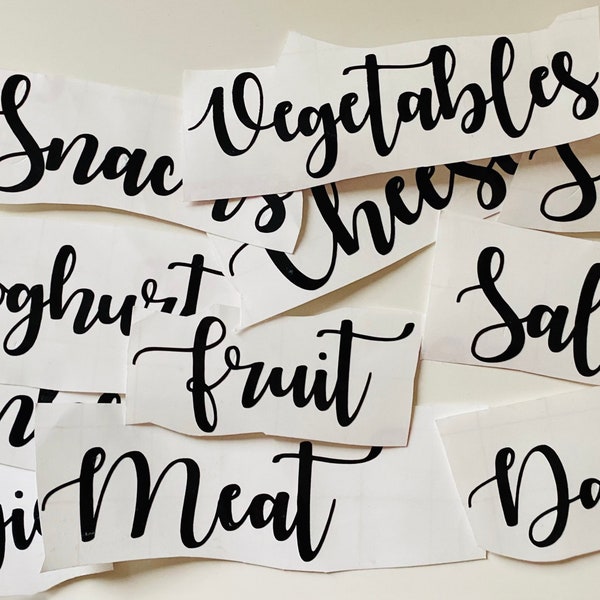 Vegetables
Snac
Cheese
oghurt
Sal
fruit
Meat
Da